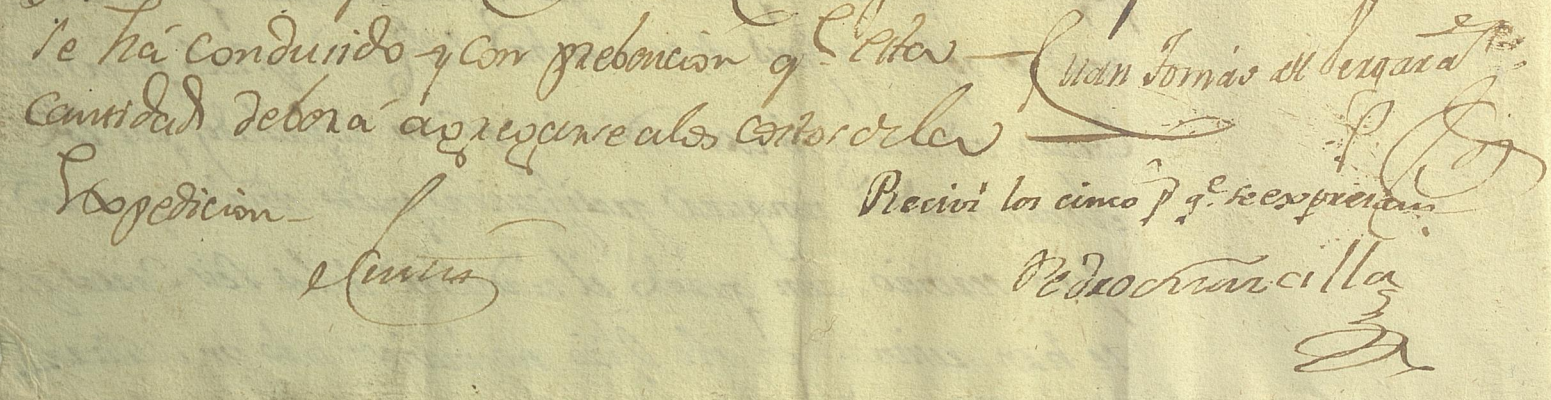 se há condusido y con prebencion q.e esta
cantidad deberá agregarse a los costos de la
Expedicion
Juan Tomás de Vergara
Recivi los cinco p.s q.e se expresan
Pedro Mancilla